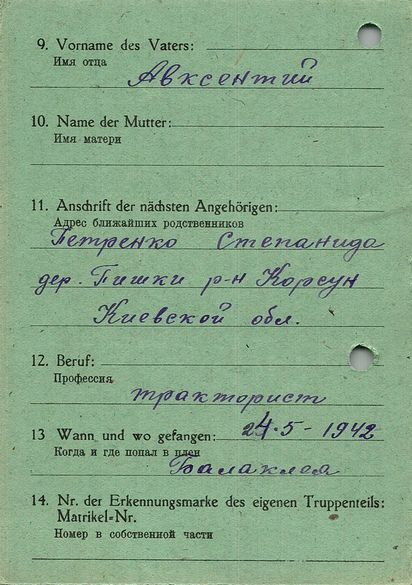 9. Vorname des Vaters:
Имя отца
Авксентий
10. Name der Mutter:
Имя матери
11. Anschrift der nächsten Angehörigen:
Адрес ближайших родственников
Петренко Степанида
дер. Пишки р-н Корсун
Киевской обл.
12. Beruf:
Профессия
тракторист
13 Wann und wo gefangen: 24.5-1942
Когда и где попал в плен
Балаклея
14. Nr. der Erkennungsmarke des eigenen Truppenteils:
Matrikel-Nr.
Номер в собственной части